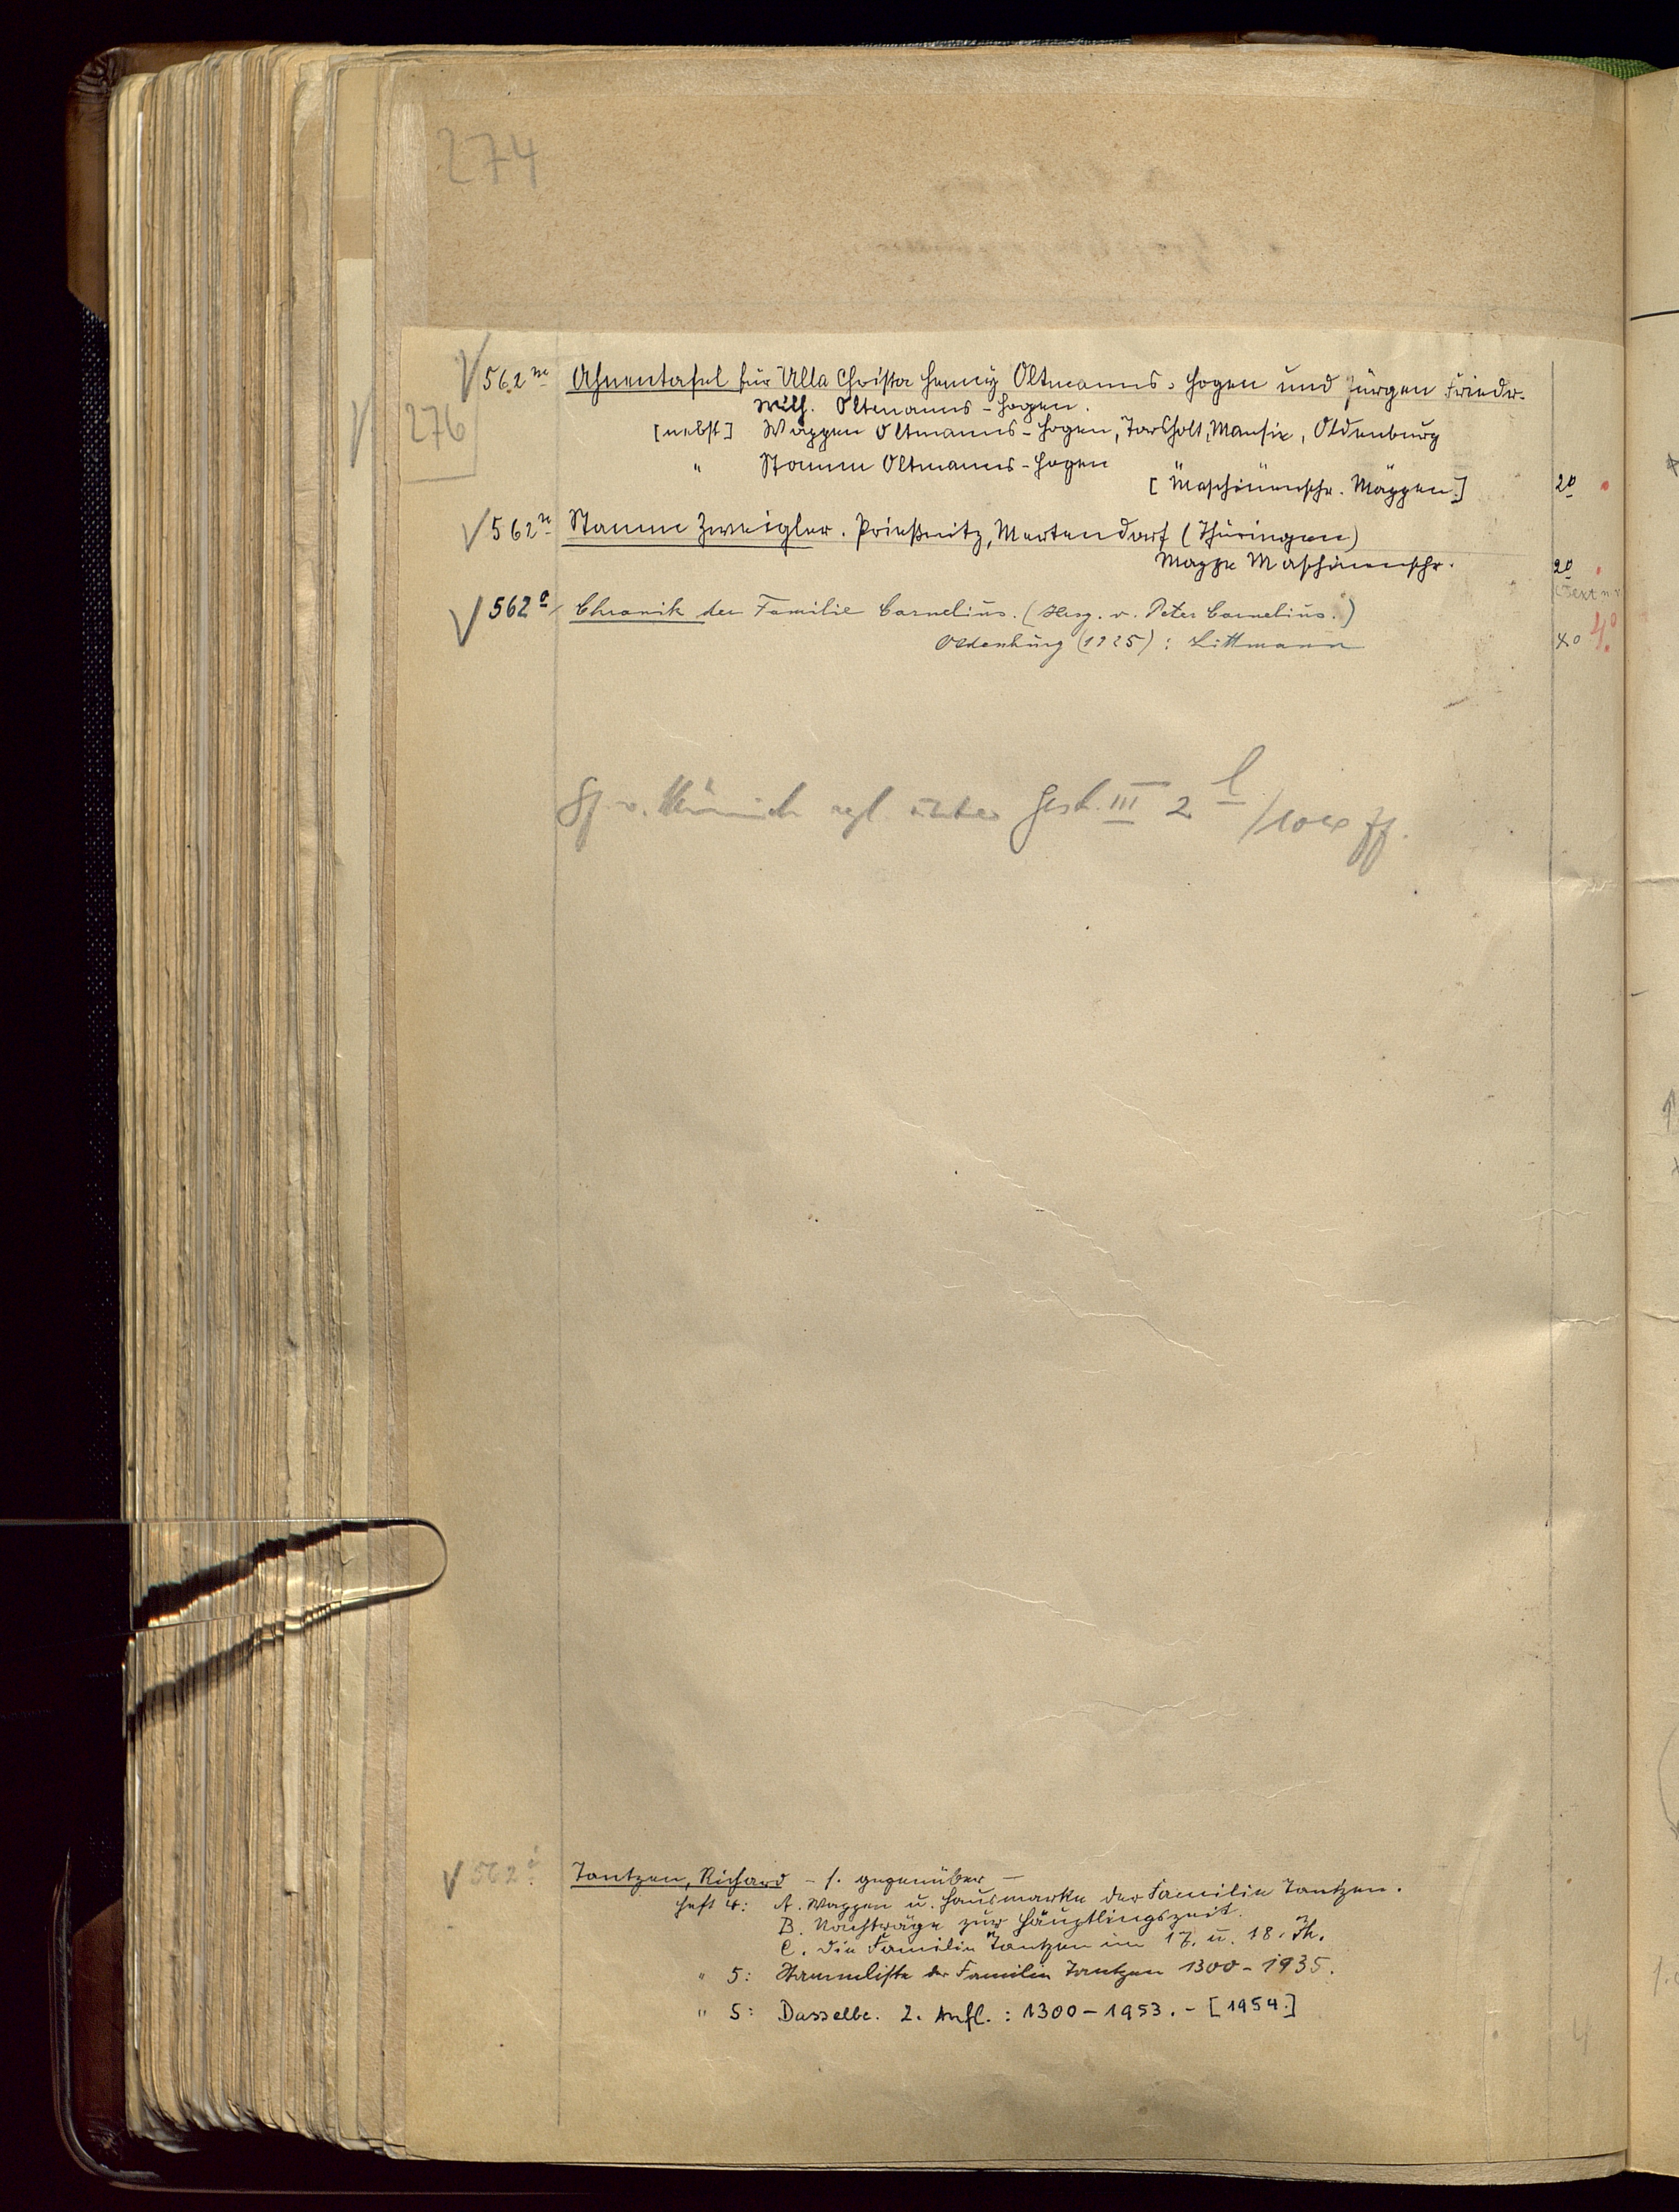 274
276
562 m Ahnentafel für Ulla Christa Henny Oltmanns-Hogen und Jürgen Friedr.
Wilh. Oltmanns-Hogen.
[nebst] Wappen Oltmanns-Hogen, Torsholt, Mansie, Oldenburg
" Stamm Oltmanns-Hogen
[Maschinenschr. Mappen.] 2°
562 n Stamm Zweigler. Prießnitz, Mertendorf (Thüringen)
Mappe Maschinenschr. 2°
562 o Chronik der Familie Cornelius. (Hrsg. v. Peter Cornelius.)
Oldenburg (1925): Littmann 4°
vgl. unter Gesch. III 2 l / ff.
562 i Tantzen, Richard – s. gegenüber –
Heft 4: A. Wappen u. Hausmarke der Familie Tantzen.
B. Nachträge zur Häuptlingszeit.
C. Die Familie Tantzen im 17. u. 18. Jh.
" 5: Stammliste der Familie Tantzen 1300–1935.
" 5: Dasselbe. 2. Aufl.: 1300–1953. – [1954.]